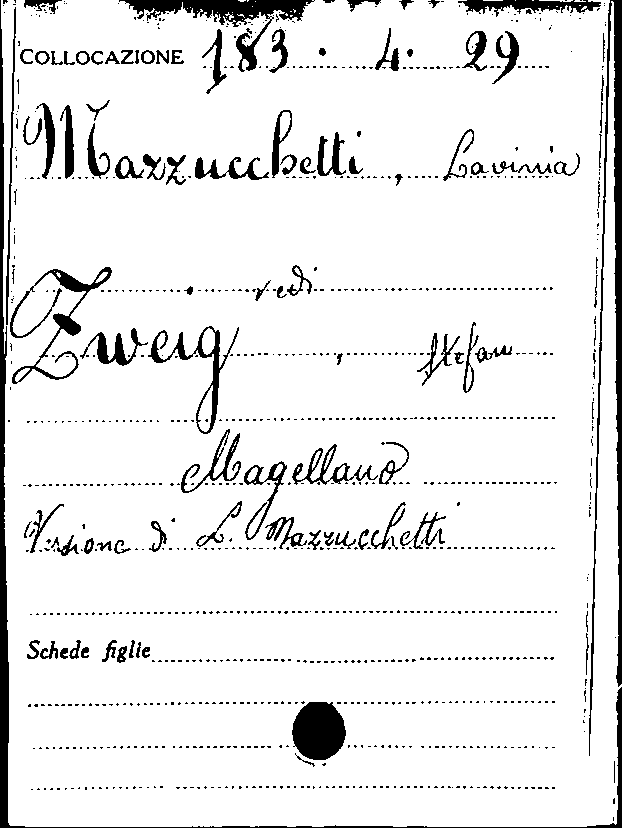 COLLOCAZIONE 183 · 4 · 29
Mazzucchetti, Lavinia
vedi
Zweig, Stefan
Magellano
Versione di L. Mazzucchetti
Schede figlie